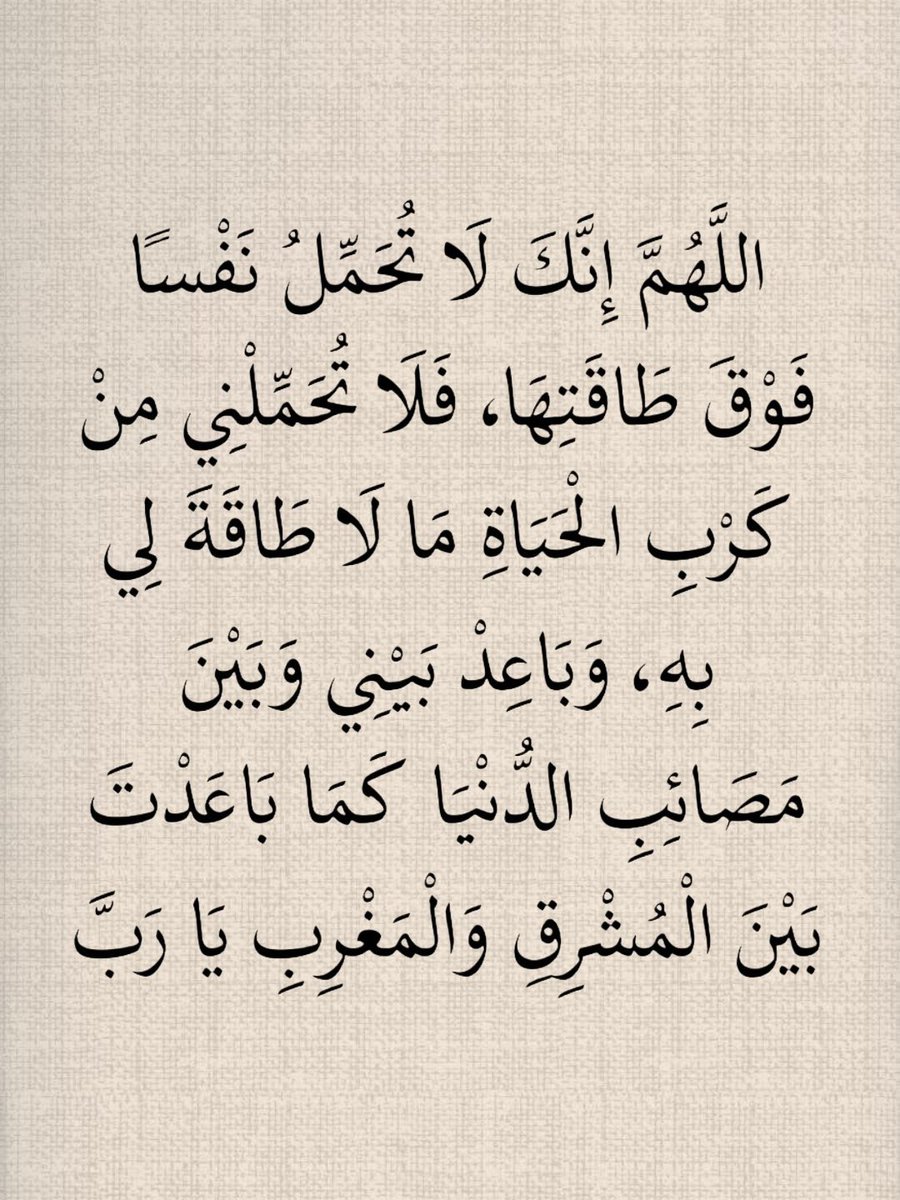 اللَّهُمَّ إِنَّكَ لَا تُحَمِّلُ نَفْسًا
فَوْقَ طَاقَتِهَا، فَلَا تُحَمِّلْنِي مِنْ
كَرْبِ الْحَيَاةِ مَا لَا طَاقَةَ لِي
بِهِ، وَبَاعِدْ بَيْنِي وَبَيْنَ
مَصَائِبِ الدُّنْيَا كَمَا بَاعَدْتَ
بَيْنَ الْمُشْرِقِ وَالْمَغْرِبِ يَا رَبَّ